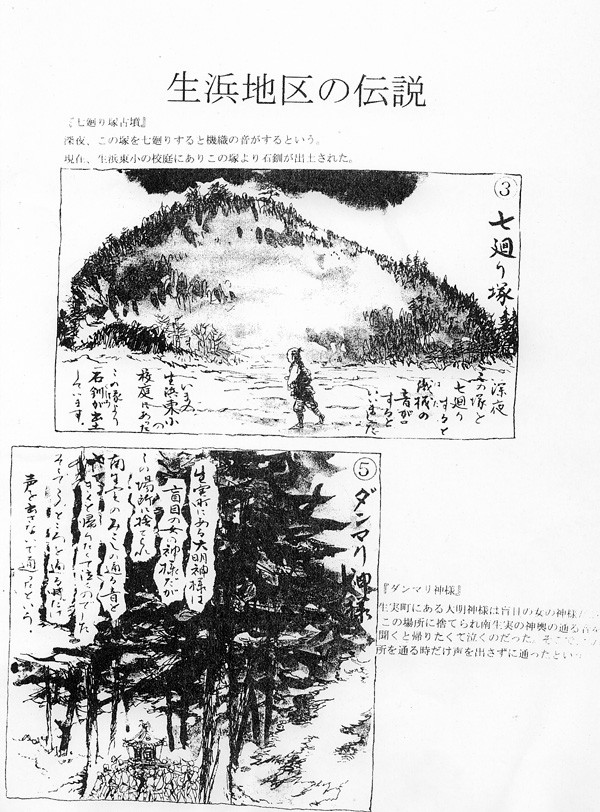 生浜地区の伝説
『七廻り塚古墳』
深夜、この塚を七廻りすると機織の音がするという。
現在、生浜東小の校庭にありこの塚より石釧が出土された。
③
七廻り塚
深夜
この塚を
七廻り
すると
機械の
音が
すると
いいました
いまの
生浜東小の
校庭にあった
この塚より
石釧が出土
しています。
⑤
ダンマリ神様
生実町にある大明神様は
盲目の女の神様だが
この場所に捨てられ
南生実のみこしの通る音を
きくと帰りたくて泣くのでした
そこでこのところを通る時だけ
声を出さないで通ったという
『ダンマリ神様』
生実町にある大明神様は盲目の女の神様
この場所に捨てられ南生実の神輿の通る音
聞くと帰りたくて泣くのだった。そこで
所を通る時だけ声を出さずに通ったという